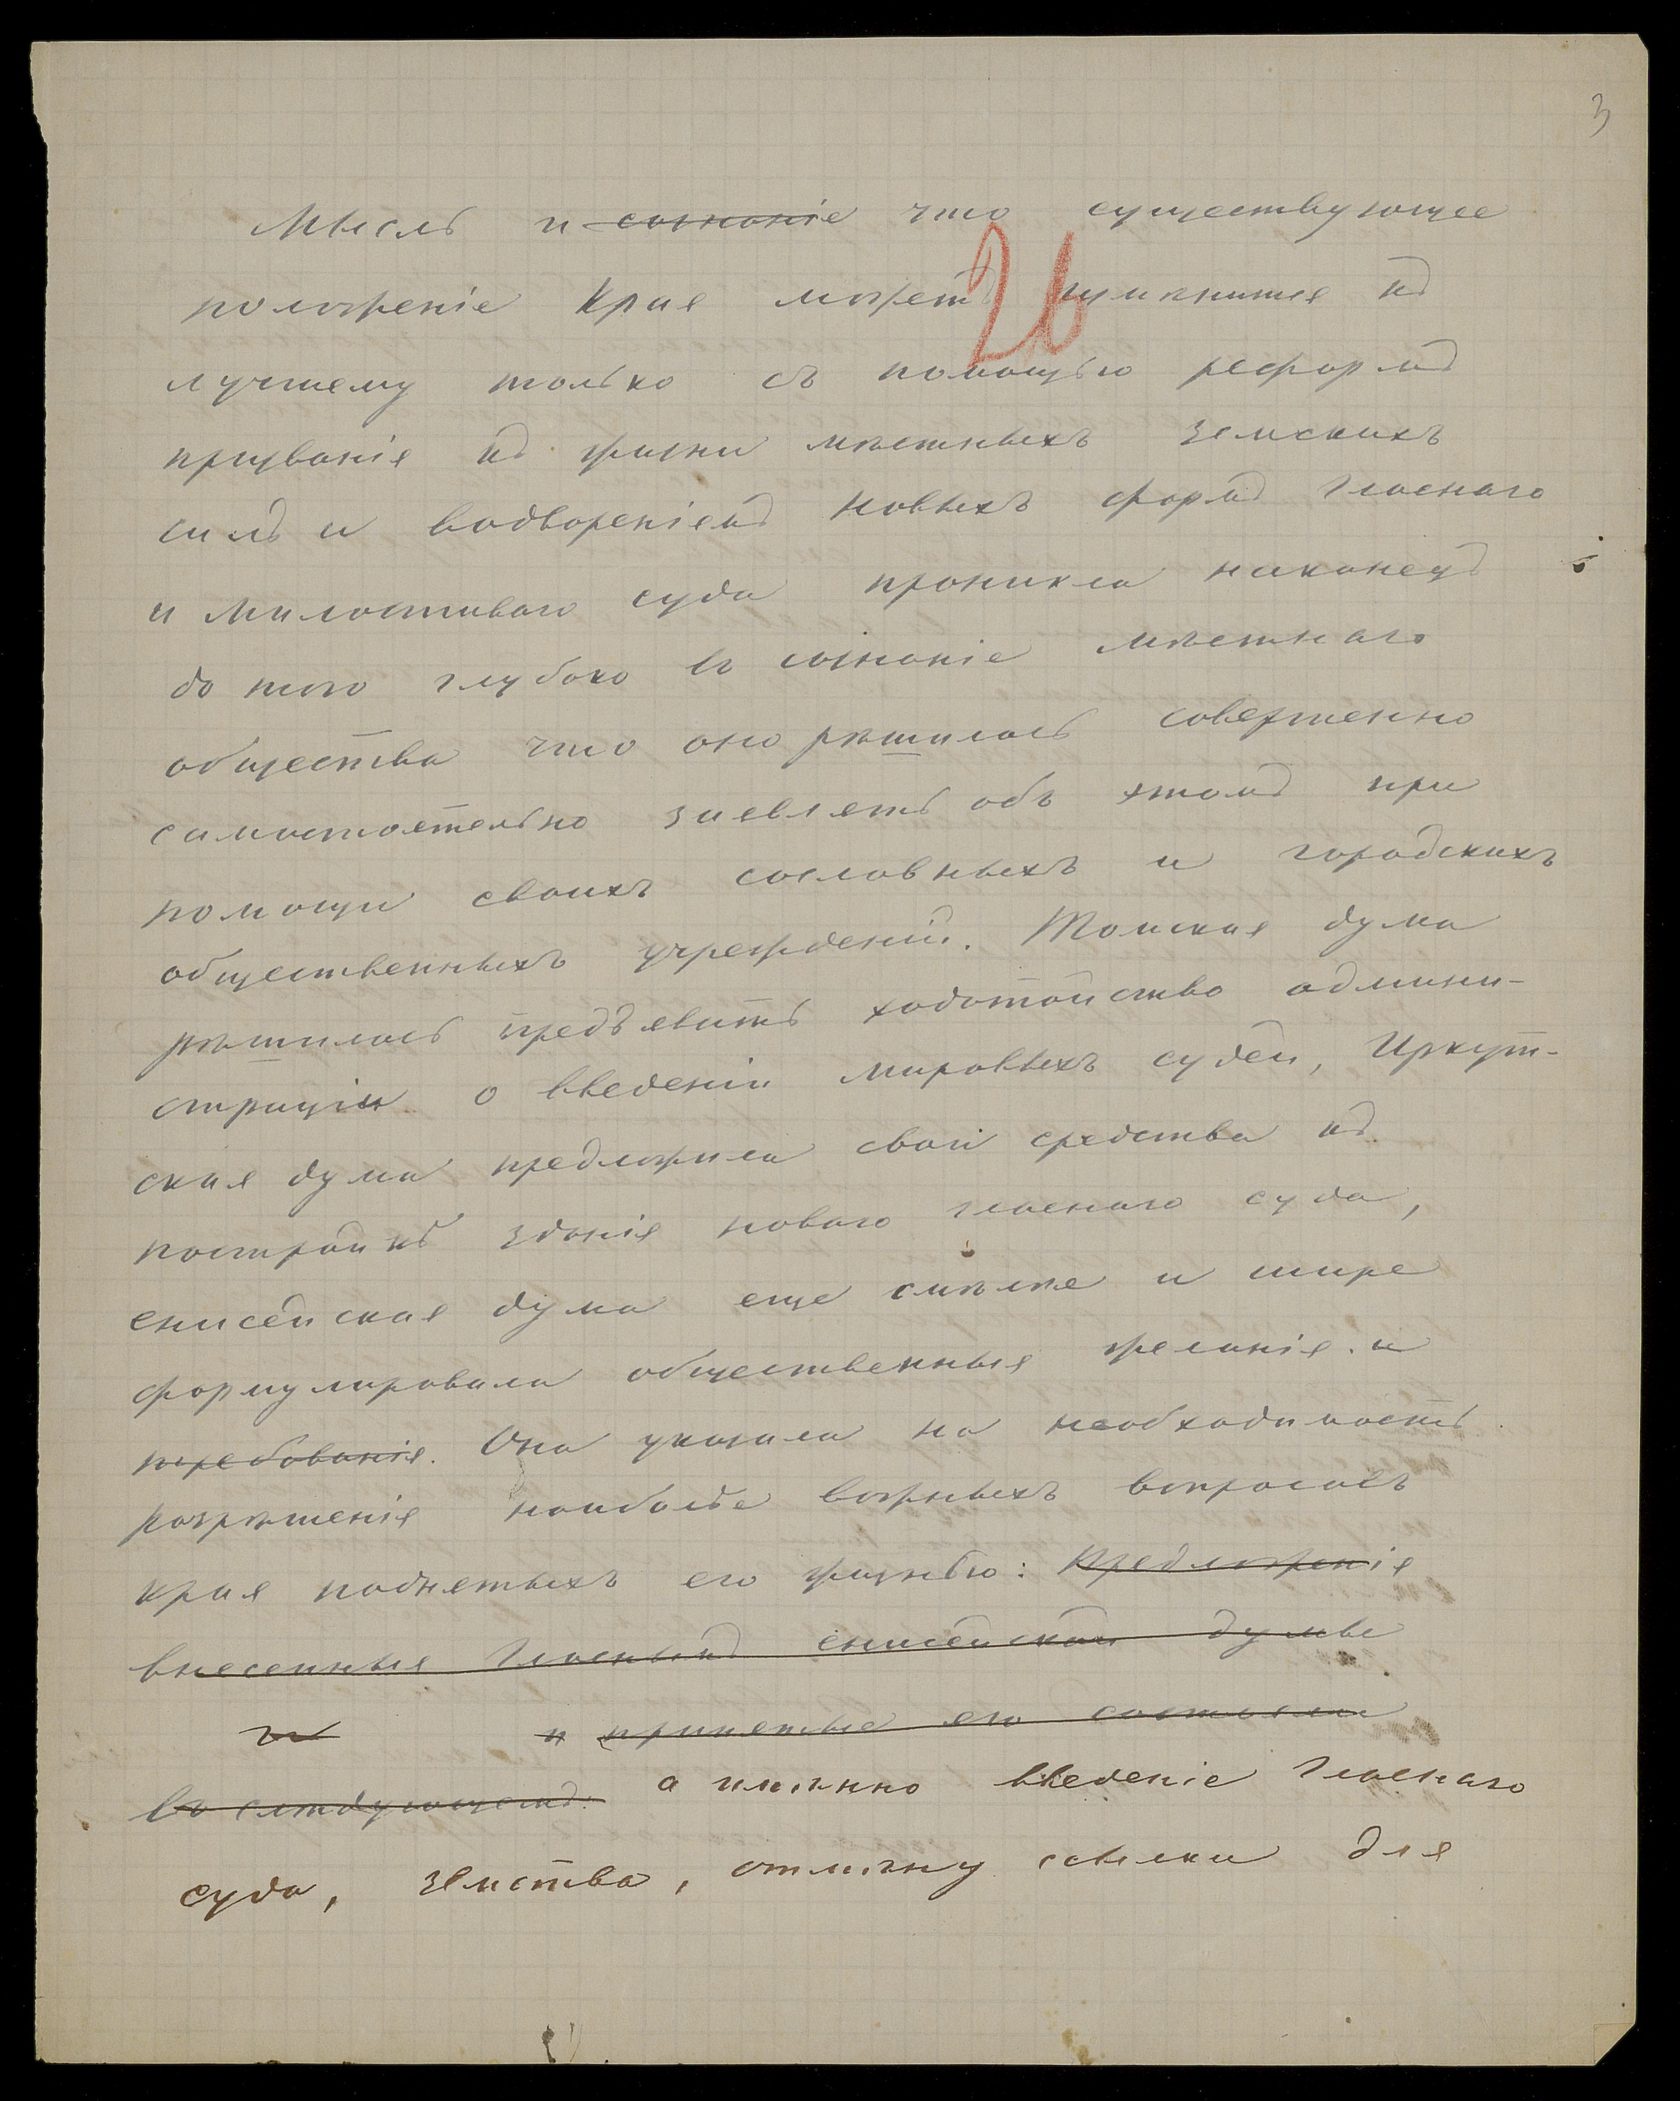 3
Мысль и ~~сознаніе~~ что существующее
26
положеніе края можетъ измениться къ
лучшему только съ помощью реформъ
призванія къ жизни мѣстныхъ земскихъ
силъ и водвореніемъ новыхъ формъ гласнаго
и милостиваго суда проникла наконецъ
до того глубоко въ сознаніе мѣстнаго
общества что оно рѣшилось совершенно
самостоятельно заявлять объ этомъ при
помощи своихъ сословныхъ и городскихъ
общественныхъ учрежденій. Томская дума
рѣшилась предъявить ходатайство админи-
страціи о введеніи мировыхъ судей, Иркут-
ская дума предложила свои средства къ
постройкѣ зданія новаго гласнаго суда,
енисейская дума еще смѣлѣе и шире
формулировала общественныя желанія ~~и~~
~~требованія~~. Она указала на необходимость
разрѣшенія наиболѣе важныхъ вопросовъ
края поднятыхъ его жизнью: ~~Предложенія~~
~~внесенныя гласнымъ енисейской думы~~
~~и~~ ~~и принятые ею состояли~~
~~въ слѣдующемъ:~~ а именно введеніе гласнаго
суда, земства, отмѣну ссылки для